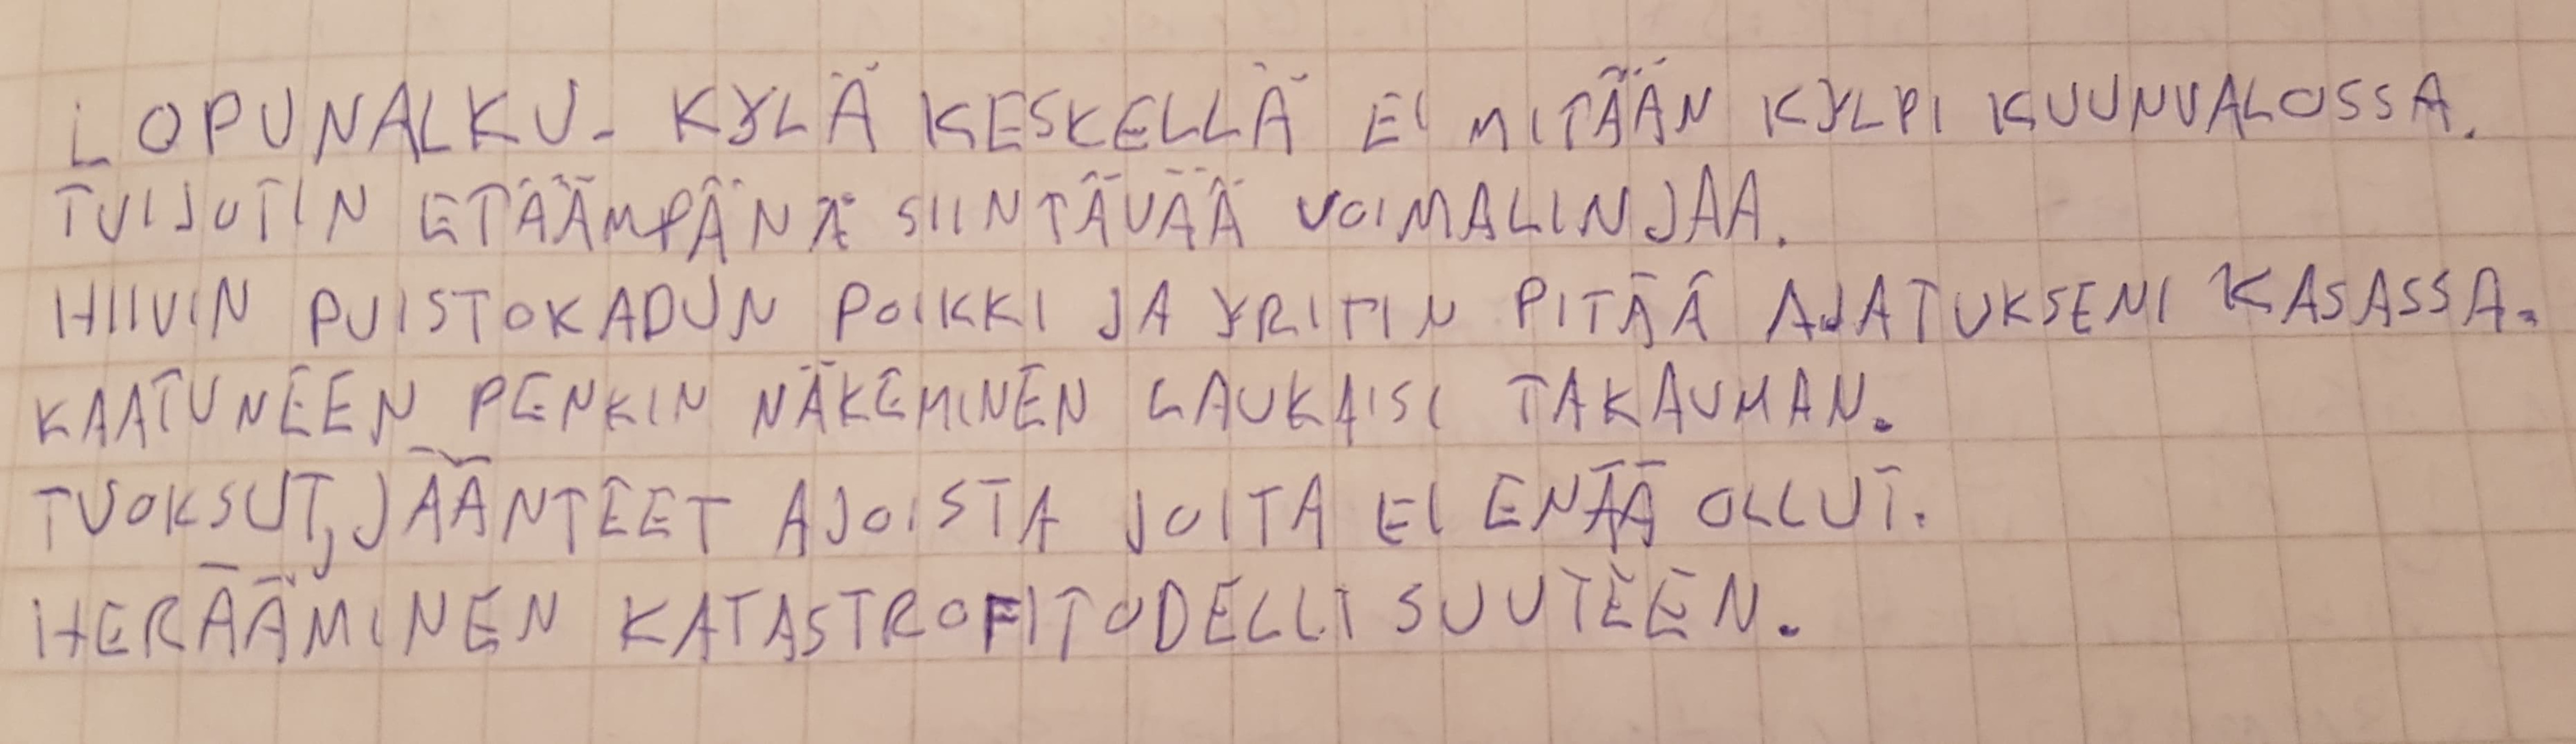 LOPUNALKU- KYLÄ KESKELLÄ EI MITÄÄN KYLPI KUUNVALOSSA.
TUIJOTIN ETÄÄMPÄNÄ SIINTÄVÄÄ VOIMALINJAA.
HIIVIN PUISTOKADUN POIKKI JA YRITIN PITÄÄ AJATUKSENI KASASSA.
KAATUNEEN PENKIN NÄKEMINEN LAUKAISI TAKAUMAN.
TUOKSUT, JÄÄNTEET AJOISTA JOITA EI ENÄÄ OLLUT.
HERÄÄMINEN KATASTROFITODELLISUUTEEN.